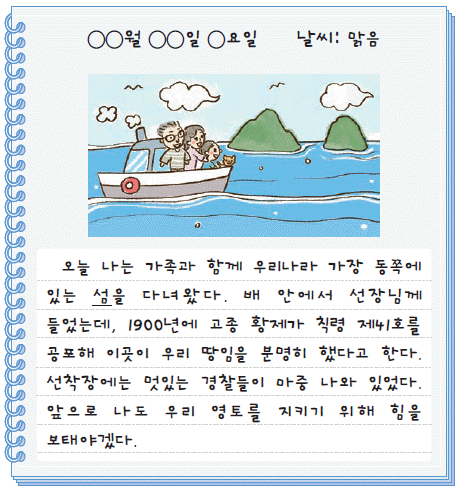 ○○월 ○○일 ○요일 날씨: 맑음
오늘 나는 가족과 함께 우리나라 가장 동쪽에
있는 섬을 다녀왔다. 배 안에서 선장님께
들었는데, 1900년에 고종 황제가 칙령 제41호를
공포해 이곳이 우리 땅임을 분명히 했다고 한다.
선착장에는 멋있는 경찰들이 마중 나와 있었다.
앞으로 나도 우리 영토를 지키기 위해 힘을
보태야겠다.